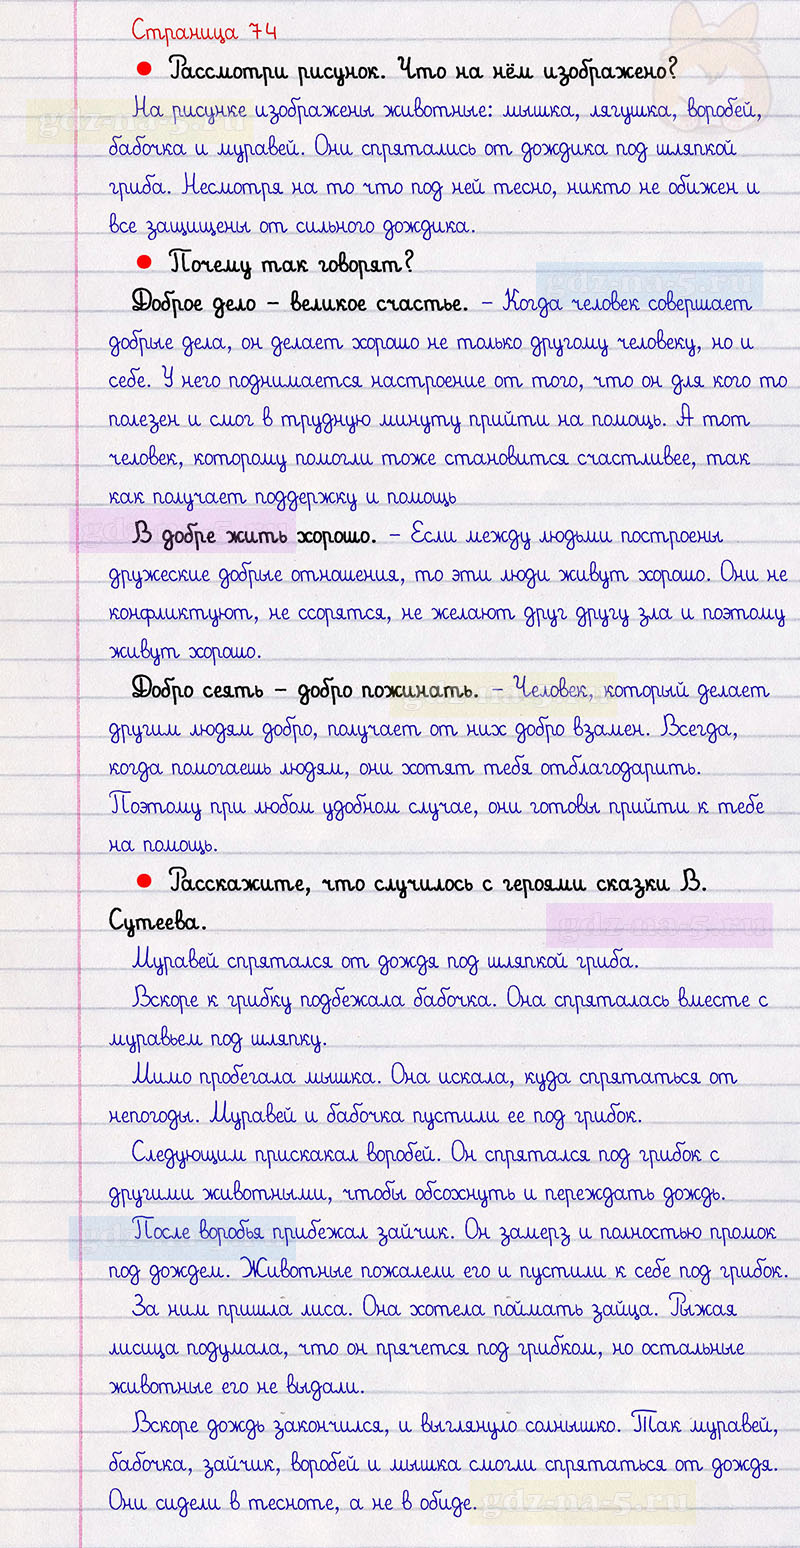 Страница 74
Рассмотри рисунок. Что на нём изображено?
На рисунке изображены животные: мышка, лягушка, воробей,
gdz-na-5.ru
бабочка и муравей. Они спрятались от дождика под шляпкой
гриба. Несмотря на то что под ней тесно, никто не обижен и
все защищены от сильного дождика.
Почему так говорят?
gdz-na-5.ru
Доброе дело – великое счастье. – Когда человек совершает
добрые дела, он делает хорошо не только другому человеку, но и
себе. У него поднимается настроение от того, что он для кого то
полезен и смог в трудную минуту прийти на помощь. А тот
человек, которому помогли тоже становится счастливее, так
как получает поддержку и помощь
gdz-na-5.ru
В добре жить хорошо. – Если между людьми построены
дружеские добрые отношения, то эти люди живут хорошо. Они не
конфликтуют, не ссорятся, не желают друг другу зла и поэтому
живут хорошо.
Добро сеять – добро пожинать. – Человек, который делает
gdz-na-5.ru
другим людям добро, получает от них добро взамен. Всегда,
когда помогаешь людям, они хотят тебя отблагодарить.
Поэтому при любом удобном случае, они готовы прийти к тебе
на помощь.
Расскажите, что случилось с героями сказки В.
Сутеева.
gdz-na-5.ru
Муравей спрятался от дождя под шляпкой гриба.
Вскоре к грибку подбежала бабочка. Она спряталась вместе с
муравьем под шляпку.
Мимо пробегала мышка. Она искала, куда спрятаться от
непогоды. Муравей и бабочка пустили ее под грибок.
Следующим прискакал воробей. Он спрятался под грибок с
другими животными, чтобы обсохнуть и переждать дождь.
После воробья прибежал зайчик. Он замерз и полностью промок
gdz-na-5.ru
под дождем. Животные пожалели его и пустили к себе под грибок.
За ним пришла лиса. Она хотела поймать зайца. Рыжая
лисица подумала, что он прячется под грибком, но остальные
животные его не выдали.
Вскоре дождь закончился, и выглянуло солнышко. Так муравей,
бабочка, зайчик, воробей и мышка смогли спрятаться от дождя.
Они сидели в тесноте, а не в обиде.
gdz-na-5.ru